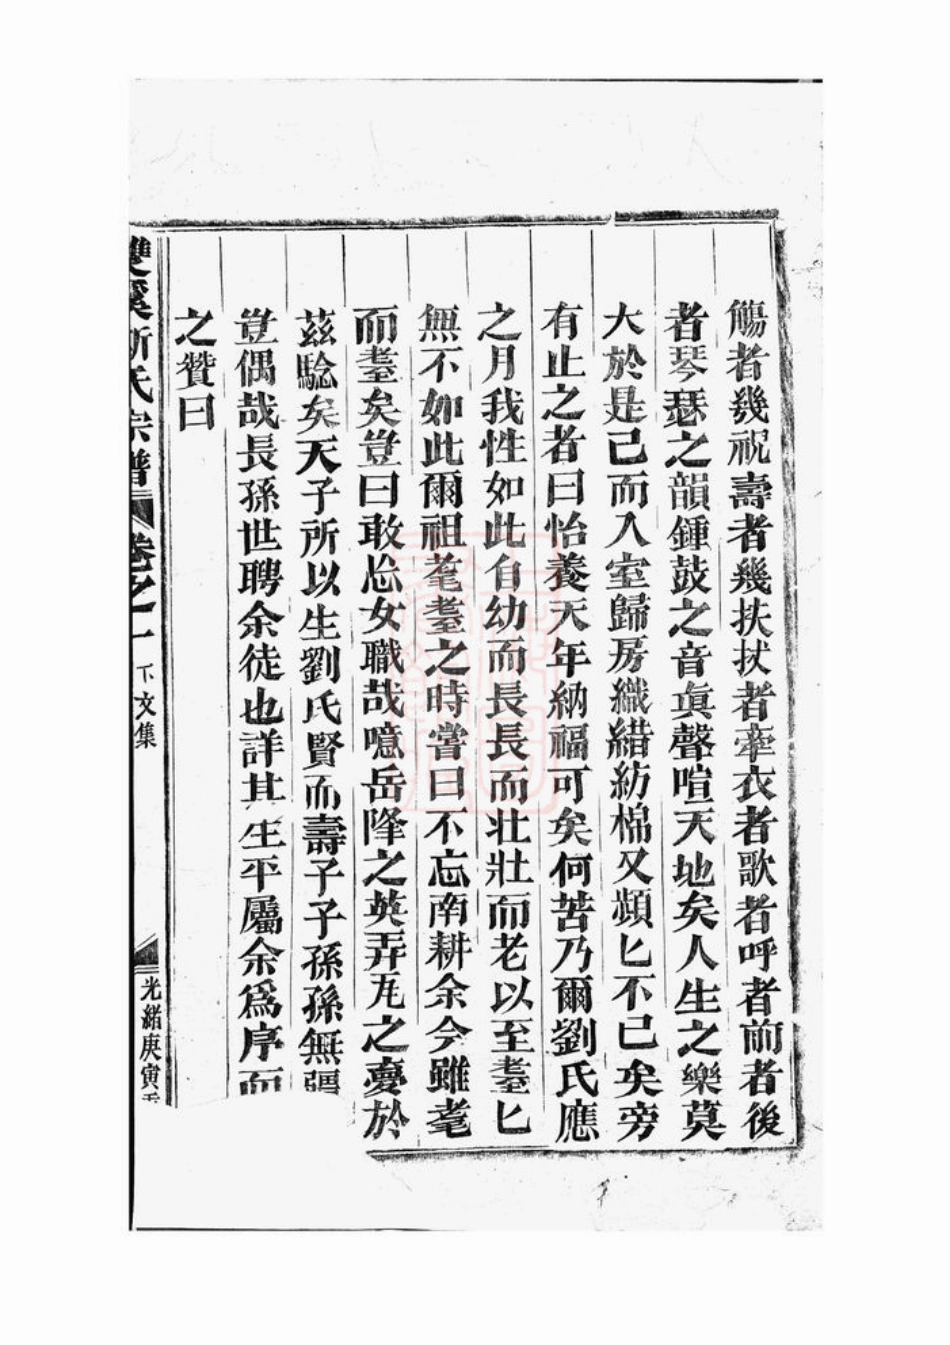 觴者幾祝壽者幾扶扙者牽衣者歌者呼者前者後
者琴瑟之韻鍾鼓之音真聲喧天地矣人生之樂莫
大於是己而入室歸房織緝紡棉又頻匕不已矣旁
有止之者曰怡養天年納福可矣何苦乃爾劉氏應
之月我性如此自幼而長長而壯壯而老以至耋匕
無不如此爾祖耄耋之時嘗曰不忘南耕余今雖耄
而耋矣豈曰敢忘女職哉噫岳降之英弄瓦之憂於
茲騐矣天子所以生劉氏賢而壽子子孫孫無疆
豈偶哉長孫世聘余徒也詳其生平屬余爲序而
之贊曰
雙溪斯氏宗譜 卷之一 下文集 光緒庚寅